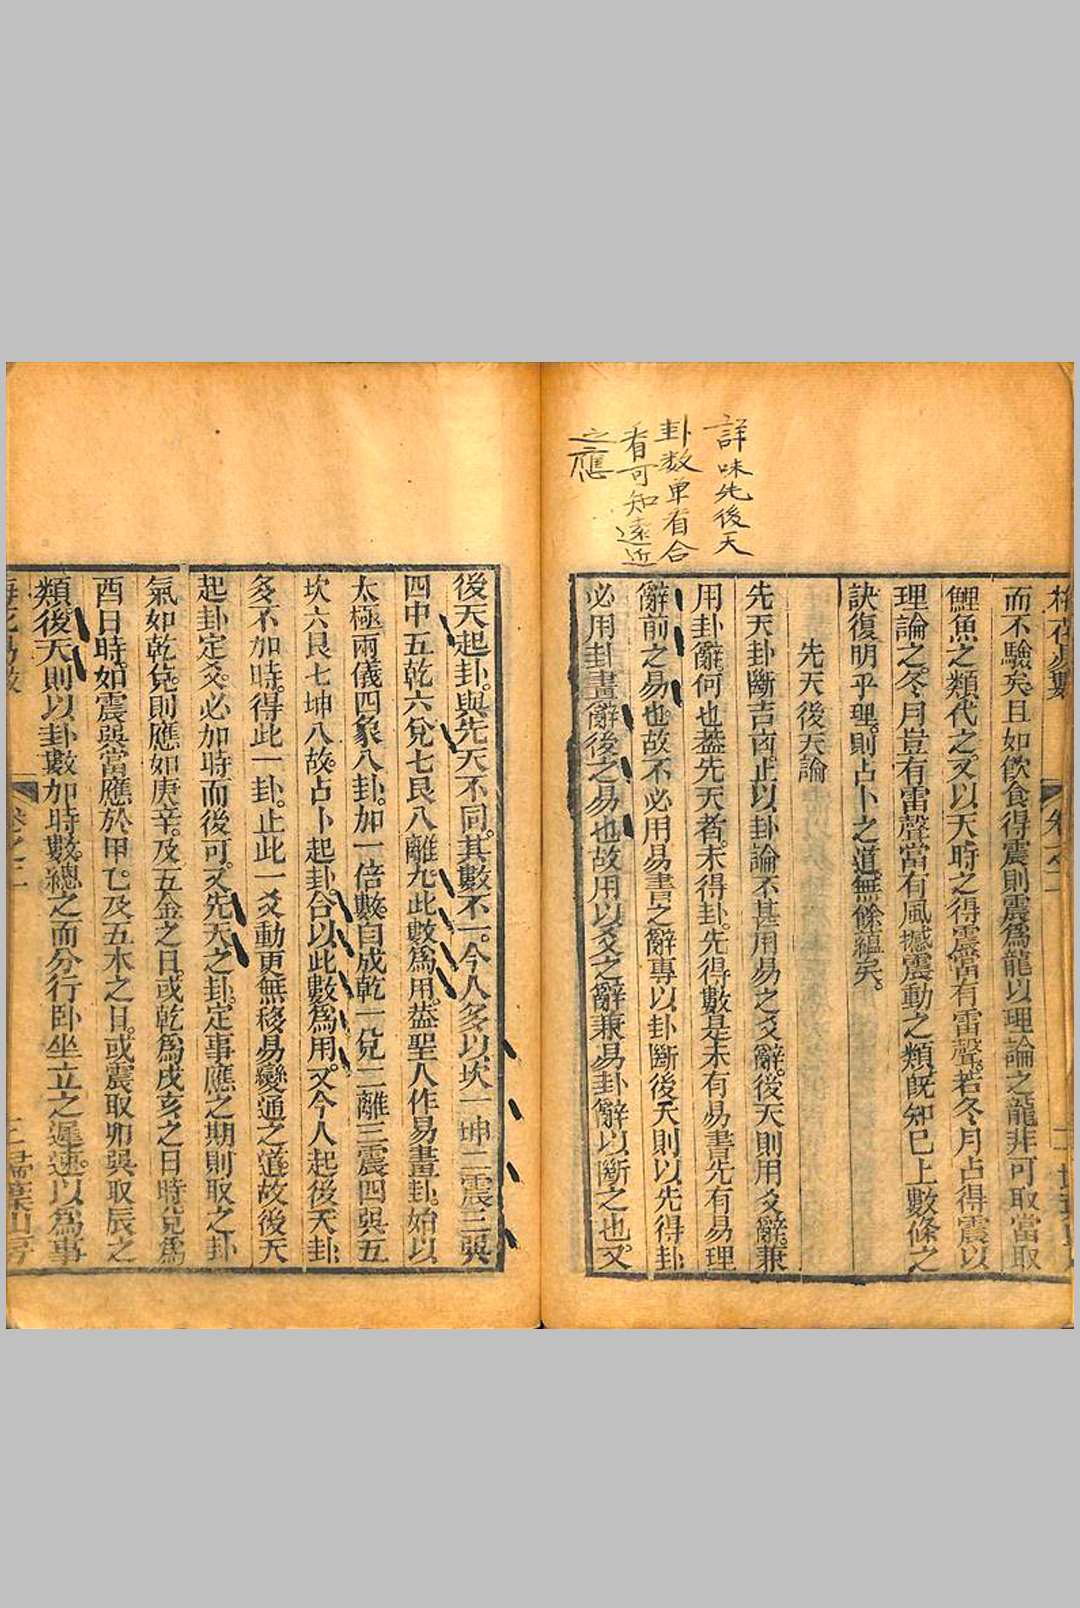 詳味先後天
卦数单看合
看可知遠近
之應
梅花易數
卷之二
而不驗矣且如飲食得震則震爲龍以理論之龍非可取當取
鯉魚之類代之又以天時之得震當有雷聲若冬月占得震以
理論之冬月豈有雷聲當有風撼震動之類旣知巳上數條之
訣復明乎理則占卜之道無餘蘊矣
先天後天論
先天卦斷吉凶止以卦論不甚用易之爻辭後天則用爻辭兼
用卦辭何也葢先天者未得卦先得數是未有易書先有易理
辭前之易也故不必用易書之辭專以卦斷後天則以先得卦
必用卦畫辭後之易也故用以爻之辭兼易卦辭以斷之也又
後天起卦與先天不同其數不一今人多以坎一坤二震三巽
四中五乾六兌七艮八離九此數爲用葢聖人作易畫卦始以
太極兩儀四象八卦加一倍數自成乾一兌二離三震四巽五
坎六艮七坤八故占卜起卦合以此數爲用又今人起後天卦
多不加時得此一卦止此一爻動更無移易變通之道故後天
起卦定爻必加時而後可又先天之卦定事應之期則取之卦
氣如乾兌則應如庚辛及五金之日或乾爲戌亥之日時兌爲
酉日時如震巽當應於甲乙及五木之日或震取卯巽取辰之
類後天則以卦數加時數總之而分行卧坐立之遲速以爲事
梅花易數
卷之二
二
掃葉山房